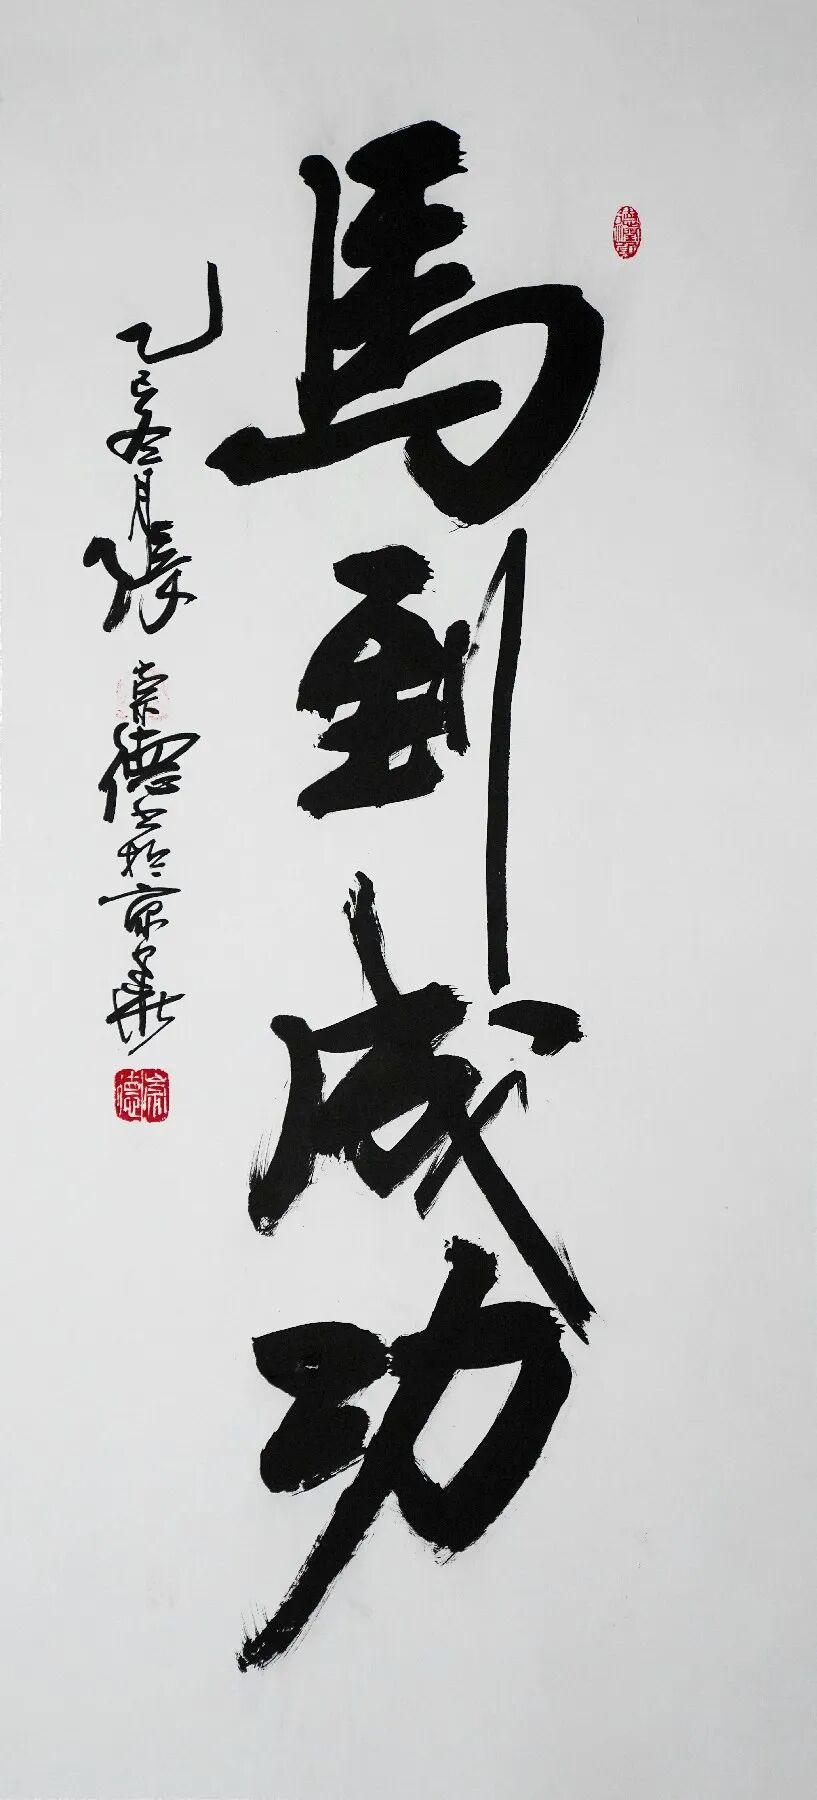 馬到成功
乙巳冬月張崇德書於京華
崇德